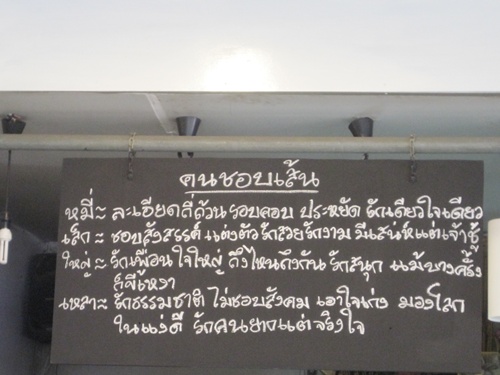 คนชอบเส้น
หมี่ ~ ละเอียดถี่ถ้วน รอบคอบ ประหยัด รักเดียวใจเดียว
เล็ก ~ ชอบสังสรรค์ แต่งตัว รักสวยรักงาม มีเสน่ห์แต่เจ้าชู้
ใหญ่ ~ รักเพื่อน ใจใหญ่ ถึงไหนถึงกัน รักสนุก แม้บางครั้ง
ก็ขี้เหงา
เหลา ~ รักธรรมชาติ ไม่ชอบสังคม เอาใจเก่ง มองโลก
ในแง่ดี รักคนยากแต่จริงใจ